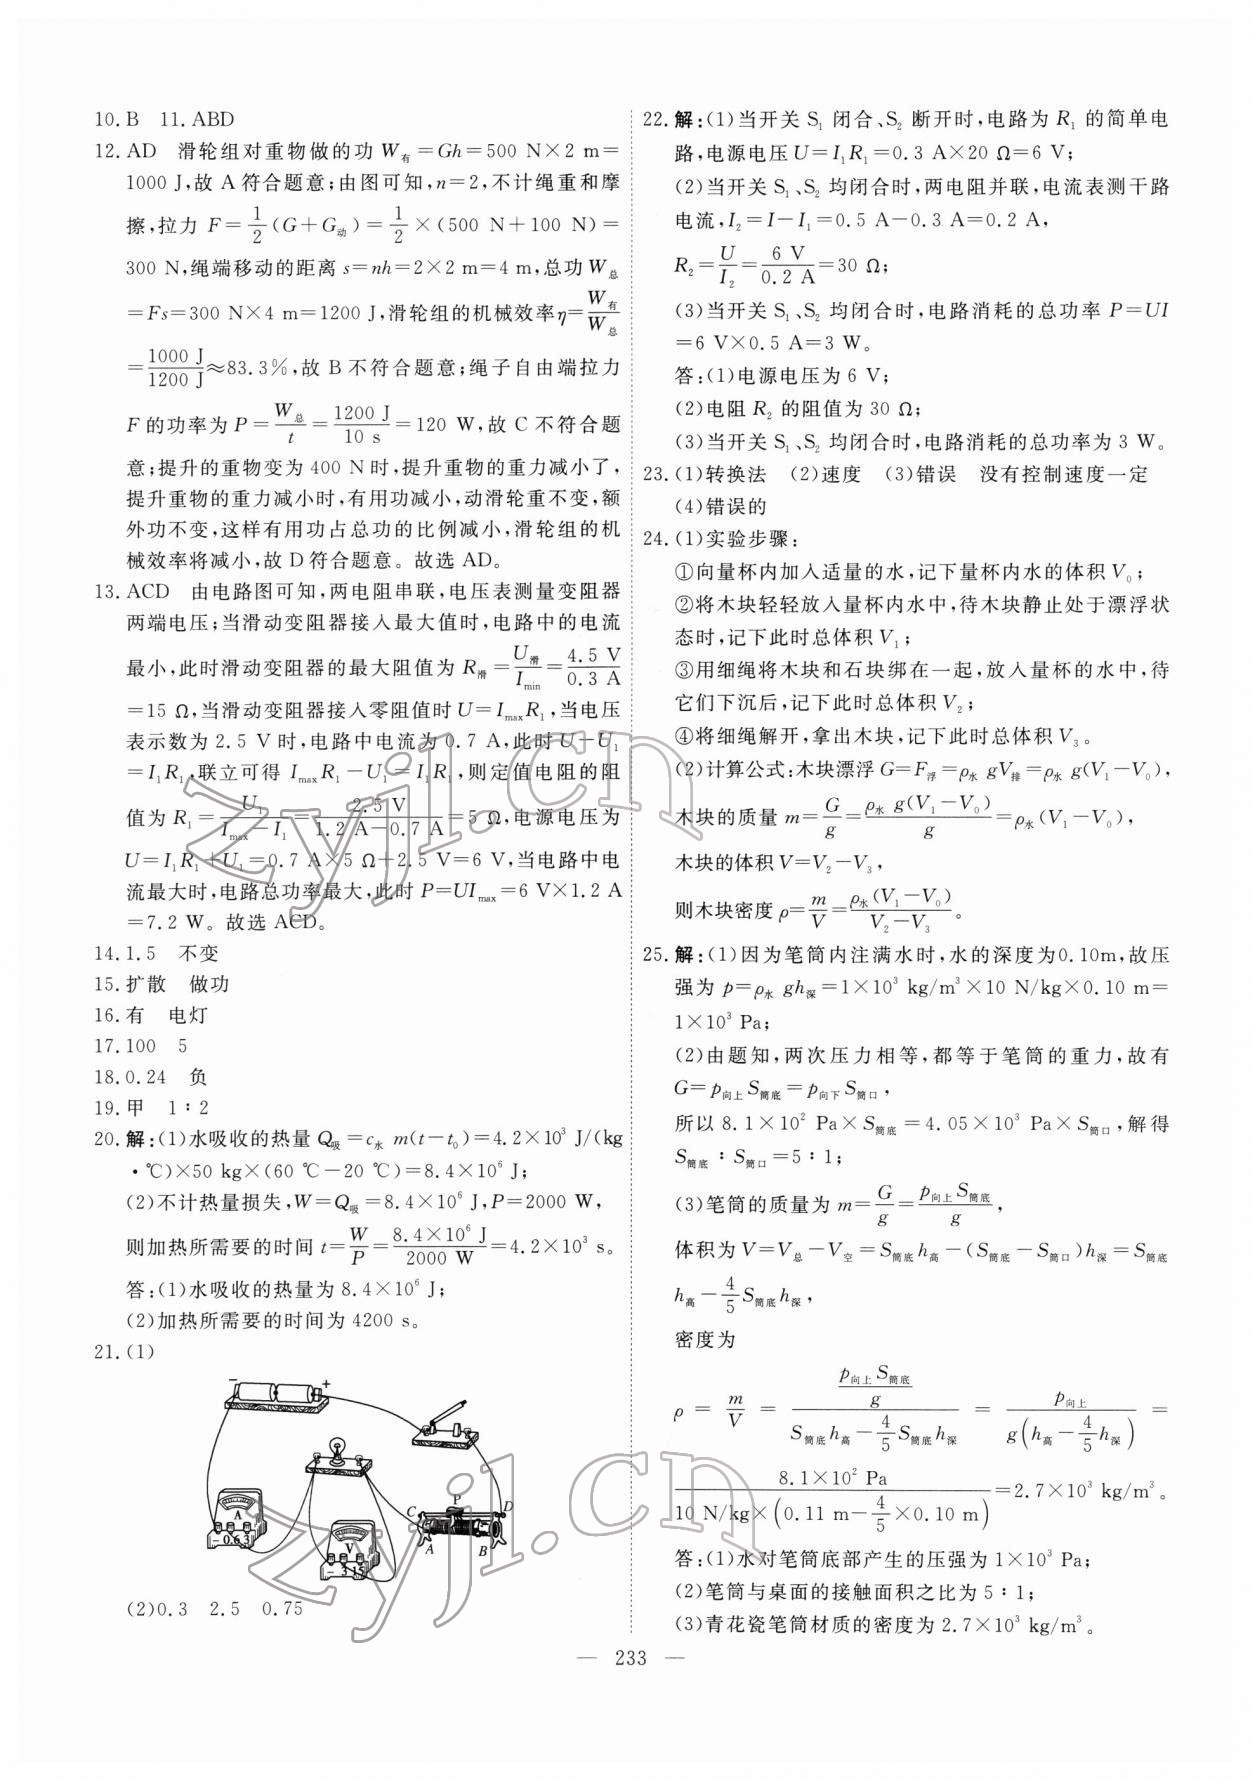 10.B　11.ABD
12.AD　滑轮组对重物做的功 W有=Gh=500 N×2 m=
1000 J,故 A 符合题意;由图可知,n=2,不计绳重和摩
擦,拉力 F=1/2(G+G动)=1/2×(500 N+100 N)=
300 N,绳端移动的距离 s=nh=2×2 m=4 m,总功 W总
=Fs=300 N×4 m=1200 J,滑轮组的机械效率 η=W有/W总
=1000 J/1200 J≈83.3%,故 B 不符合题意;绳子自由端拉力
F 的功率为 P=W总/t=1200 J/10 s=120 W,故 C 不符合题
意;提升的重物变为 400 N 时,提升重物的重力减小了,
提升重物的重力减小时,有用功减小,动滑轮重不变,额
外功不变,这样有用功占总功的比例减小,滑轮组的机
械效率将减小,故 D 符合题意。故选 AD。
13.ACD　由电路图可知,两电阻串联,电压表测量变阻器
两端电压;当滑动变阻器接入最大值时,电路中的电流
最小,此时滑动变阻器的最大阻值为 R滑=U滑/Imin=4.5 V/0.3 A
=15 Ω,当滑动变阻器接入零阻值时 U=ImaxR1,当电压
表示数为 2.5 V 时,电路中电流为 0.7 A,此时 U-U1
=I1R1,联立可得 ImaxR1-U1=I1R1,则定值电阻的阻
值为 R1=U1/(Imax-I1)=2.5 V/(1.2 A-0.7 A)=5 Ω,电源电压为
U=I1R1+U1=0.7 A×5 Ω+2.5 V=6 V,当电路中电
流最大时,电路总功率最大,此时 P=UImax=6 V×1.2 A
=7.2 W。故选 ACD。
14.1.5　不变
15.扩散　做功
16.有　电灯
17.100　5
18.0.24　负
19.甲　1∶2
20.解:(1)水吸收的热量 Q吸=c水 m(t-t0)=4.2×10³ J/(kg
·℃)×50 kg×(60 ℃-20 ℃)=8.4×10⁶ J;
(2)不计热量损失,W=Q吸=8.4×10⁶ J,P=2000 W,
则加热所需要的时间 t=W/P=8.4×10⁶ J/2000 W=4.2×10³ s。
答:(1)水吸收的热量为 8.4×10⁶ J;
(2)加热所需要的时间为 4200 s。
21.(1)
- +
P
C D
A
- 0.6 3
V
- 3 15
A B
(2)0.3　2.5　0.75
22.解:(1)当开关 S1 闭合、S2 断开时,电路为 R1 的简单电
路,电源电压 U=I1R1=0.3 A×20 Ω=6 V;
(2)当开关 S1、S2 均闭合时,两电阻并联,电流表测干路
电流,I2=I-I1=0.5 A-0.3 A=0.2 A,
R2=U/I2=6 V/0.2 A=30 Ω;
(3)当开关 S1、S2 均闭合时,电路消耗的总功率 P=UI
=6 V×0.5 A=3 W。
答:(1)电源电压为 6 V;
(2)电阻 R2 的阻值为 30 Ω;
(3)当开关 S1、S2 均闭合时,电路消耗的总功率为 3 W。
23.(1)转换法　(2)速度　(3)错误　没有控制速度一定
(4)错误的
24.(1)实验步骤:
①向量杯内加入适量的水,记下量杯内水的体积 V0;
②将木块轻轻放入量杯内水中,待木块静止处于漂浮状
态时,记下此时总体积 V1;
③用细绳将木块和石块绑在一起,放入量杯的水中,待
它们下沉后,记下此时总体积 V2;
④将细绳解开,拿出木块,记下此时总体积 V3。
(2)计算公式:木块漂浮 G=F浮=ρ水 gV排=ρ水 g(V1-V0),
木块的质量 m=G/g=ρ水 g(V1-V0)/g=ρ水(V1-V0),
木块的体积 V=V2-V3,
则木块密度 ρ=m/V=ρ水(V1-V0)/(V2-V3)。
25.解:(1)因为笔筒内注满水时,水的深度为0.10m,故压
强为 p=ρ水 gh深=1×10³ kg/m³×10 N/kg×0.10 m=
1×10³ Pa;
(2)由题知,两次压力相等,都等于笔筒的重力,故有
G=p向上S筒底=p向下S筒口,
所以 8.1×10² Pa×S筒底=4.05×10³ Pa×S筒口,解得
S筒底∶S筒口=5∶1;
(3)笔筒的质量为 m=G/g=p向上S筒底/g,
体积为 V=V总-V空=S筒底h高-(S筒底-S筒口)h深=S筒底
h高-4/5S筒底h深,
密度为
ρ=m/V=(p向上S筒底/g)/(S筒底h高-4/5S筒底h深)=p向上/g(h高-4/5h深)=
8.1×10² Pa/10 N/kg×(0.11 m-4/5×0.10 m)=2.7×10³ kg/m³。
答:(1)水对笔筒底部产生的压强为 1×10³ Pa;
(2)笔筒与桌面的接触面积之比为 5∶1;
(3)青花瓷笔筒材质的密度为 2.7×10³ kg/m³。
— 233 —
zyjl.cn
zyjl.cn